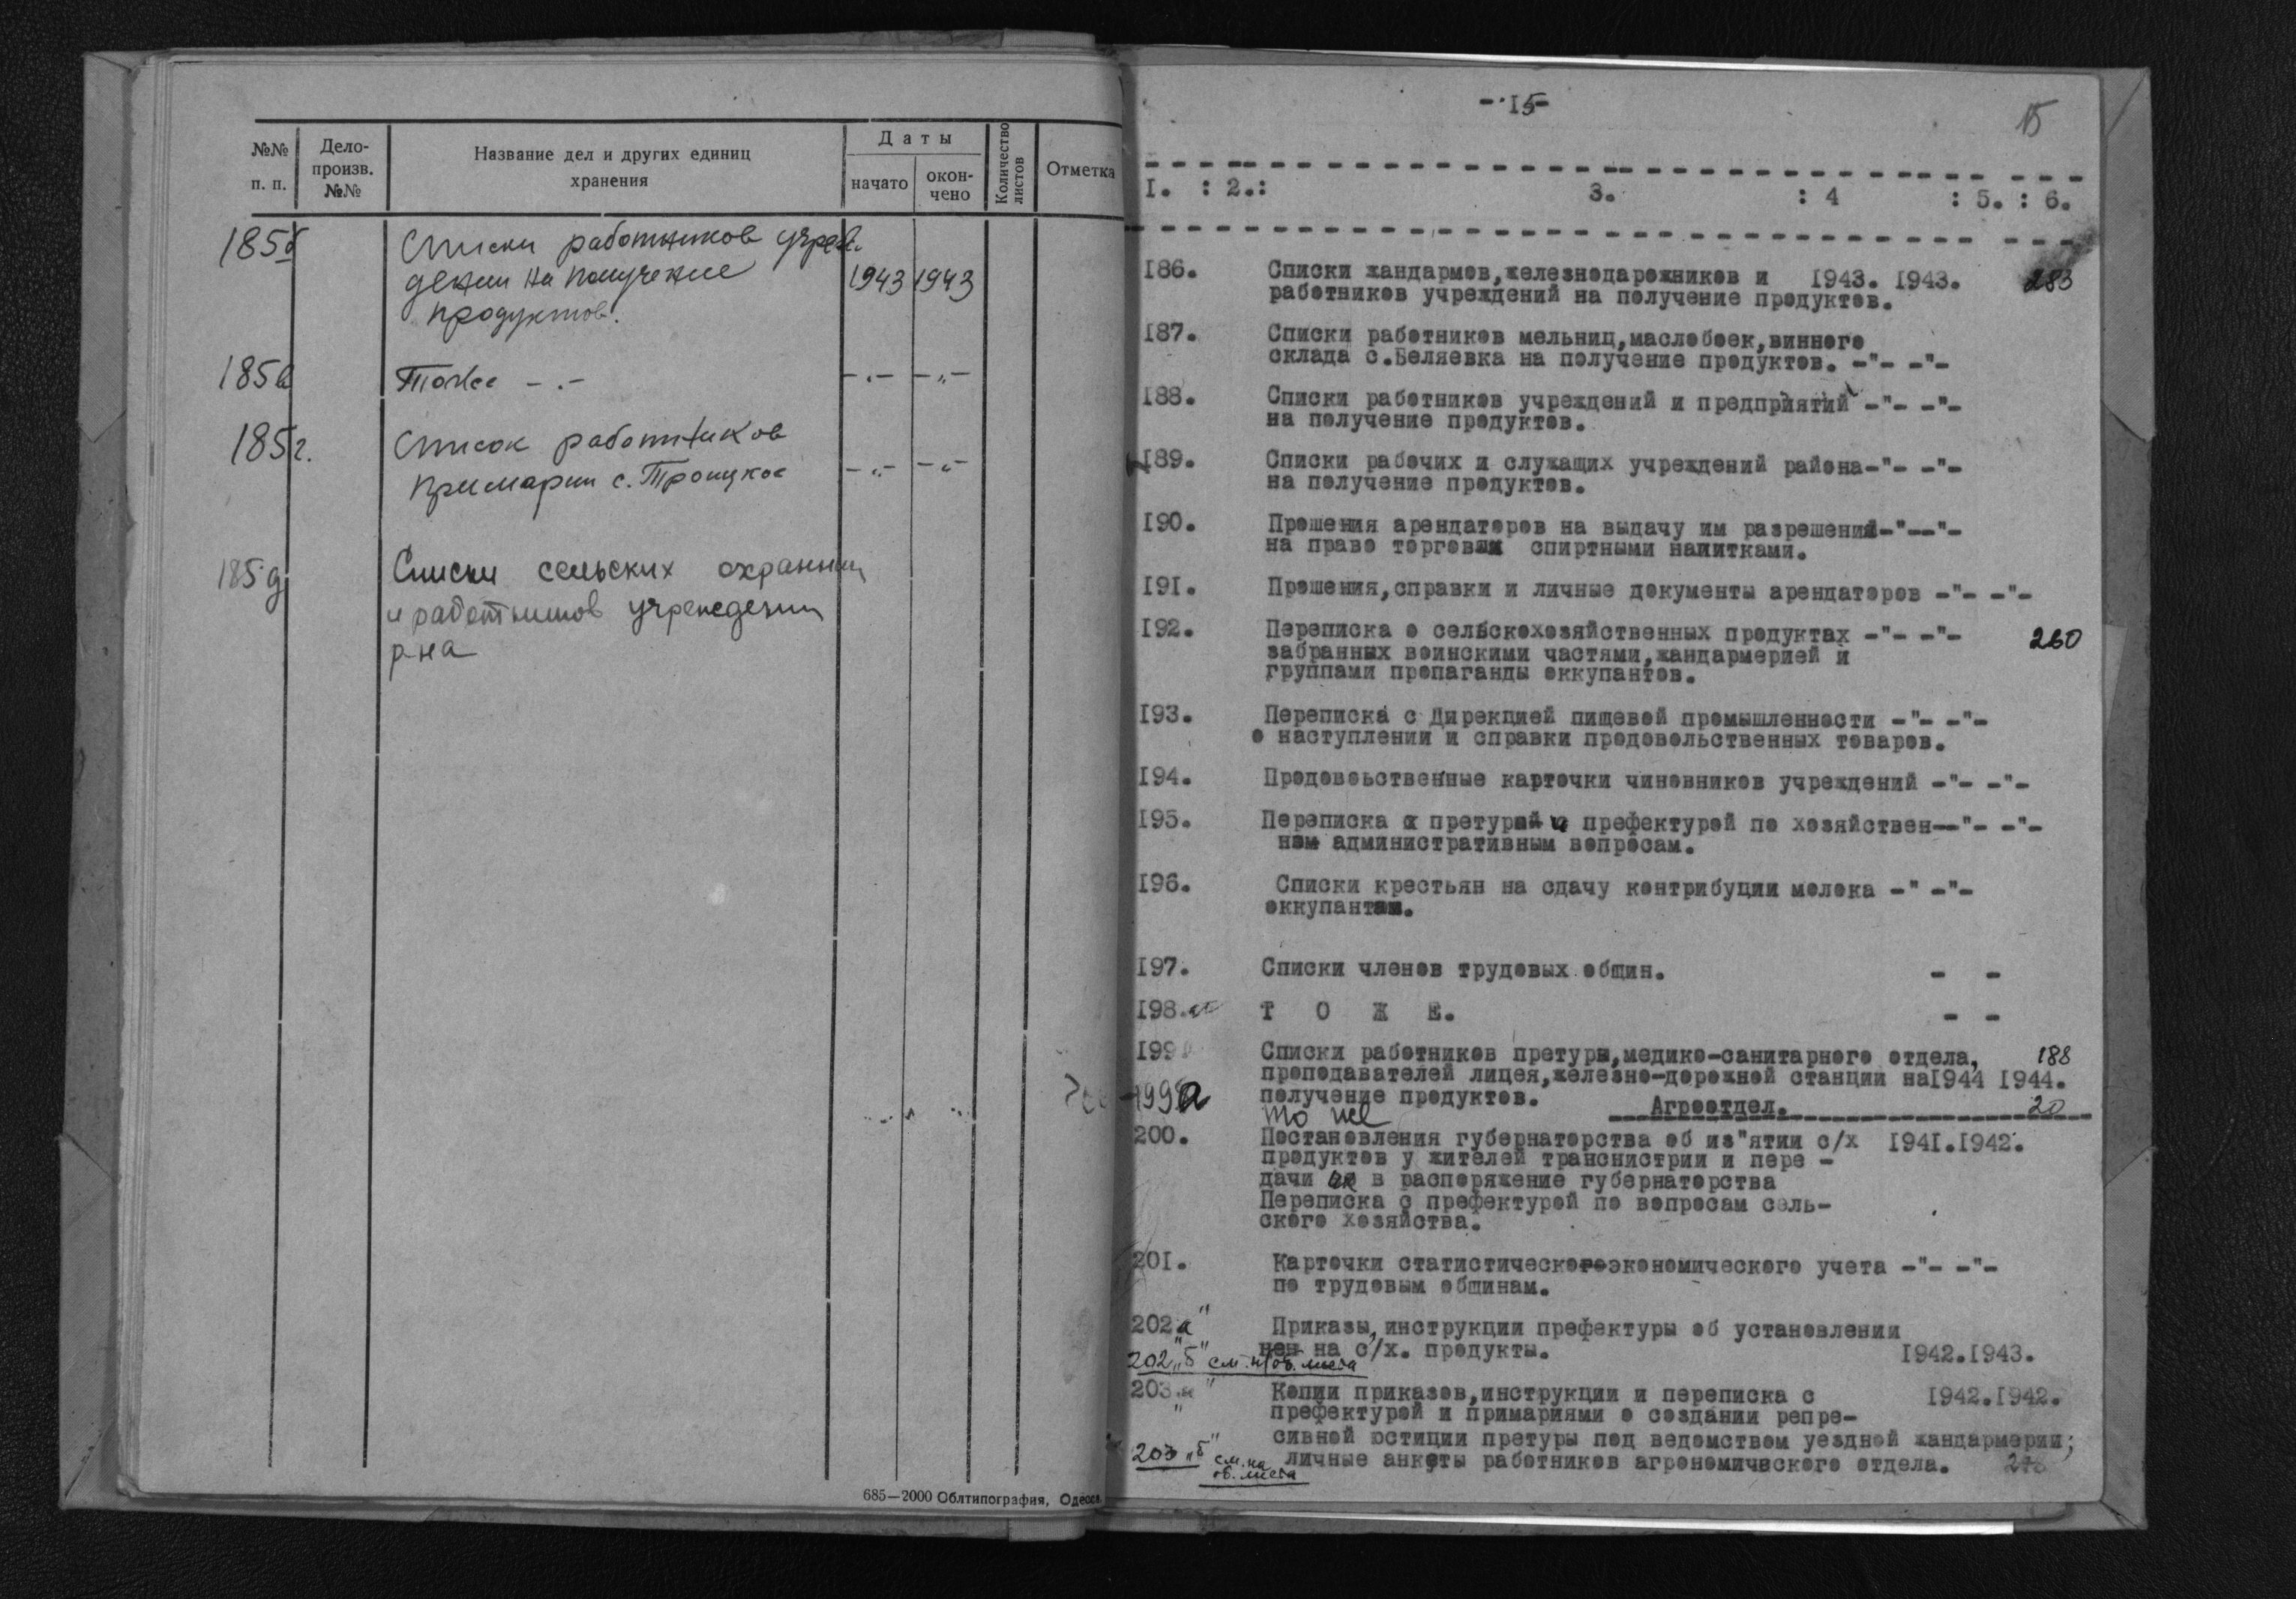 №№ п. п.
Дело-произв. №№
Название дел и других единиц хранения
Даты
начато
окончено
Количество листов
Отметка
185б
Списки работников учреж-
дении на получение 1943 1943
продуктов.
185в
Тоже -.- -„- -„-
185г.
Список работников
примарии с. Троицкое -„- -„-
185д
Списки сельских охранни
и работников учреждении
р-на
685—2000 Облтипография, Одесса.
-15-
15
I. : 2.: 3. : 4 : 5. : 6.
I86. Списки жандармов,железнодарожников и 1943. 1943. 283
работников учреждений на получение продуктов.
I87. Списки работников мельниц,маслобоек,винного
склада с.Беляевка на получение продуктов. -"- -"-
I88. Списки работников учреждений и предприятий -"- -"-
на получение продуктов.
I89. Списки рабочих и служащих учреждений района-"- -"-
на получение продуктов.
I90. Прошения арендаторов на выдачу им разрешений-"--"-
на право торговли спиртными напитками.
I9I. Прошения,справки и личные документы арендаторов -"- -"-
I92. Переписка о сельскохозяйственных продуктах -"- -"- 260
забранных воинскими частями,жандармерией и
группами пропаганды оккупантов.
I93. Переписка с Дирекцией пищевой промышленности -"- -"-
о наступлении и справки продовольственных товаров.
I94. Продовоьственные карточки чиновников учреждений -"- -"-
I95. Переписка с претурой и префектурой по хозяйствен--"- -"-
ном административным вопросам.
I96. Списки крестьян на сдачу контрибуции молока -" -"-
оккупантам.
I97. Списки членов трудовых общин. - -
I98. Т О Ж Е. - -
I99 Списки работников претуры,медико-санитарного отдела, 188
преподавателей лицея,железно-дорожной станции на1944 1944.
199а получение продуктов. Агроотдел. 20
то же
200. Постановления губернаторства об из"ятии с/х 194I.1942.
продуктов у жителей транснистрии и пере -
дачи их в распоряжение губернаторства
Переписка с префектурой по вопросам сель-
ского хозяйства.
20I. Карточки статистическогоэкономического учета -"- -"-
по трудовым общинам.
202„а" Приказы,инструкции префектуры об установлении
цен на с/х. продукты. 1942.1943.
202„б" см. н/об. листа
203„а" Копии приказов,инструкции и переписка с 1942.1942.
префектурой и примариями о создании репре-
сивной юстиции претуры под ведомством уездной жандармерии;
203„б" см. на личные анкеты работников агрономического отдела.
об. листа